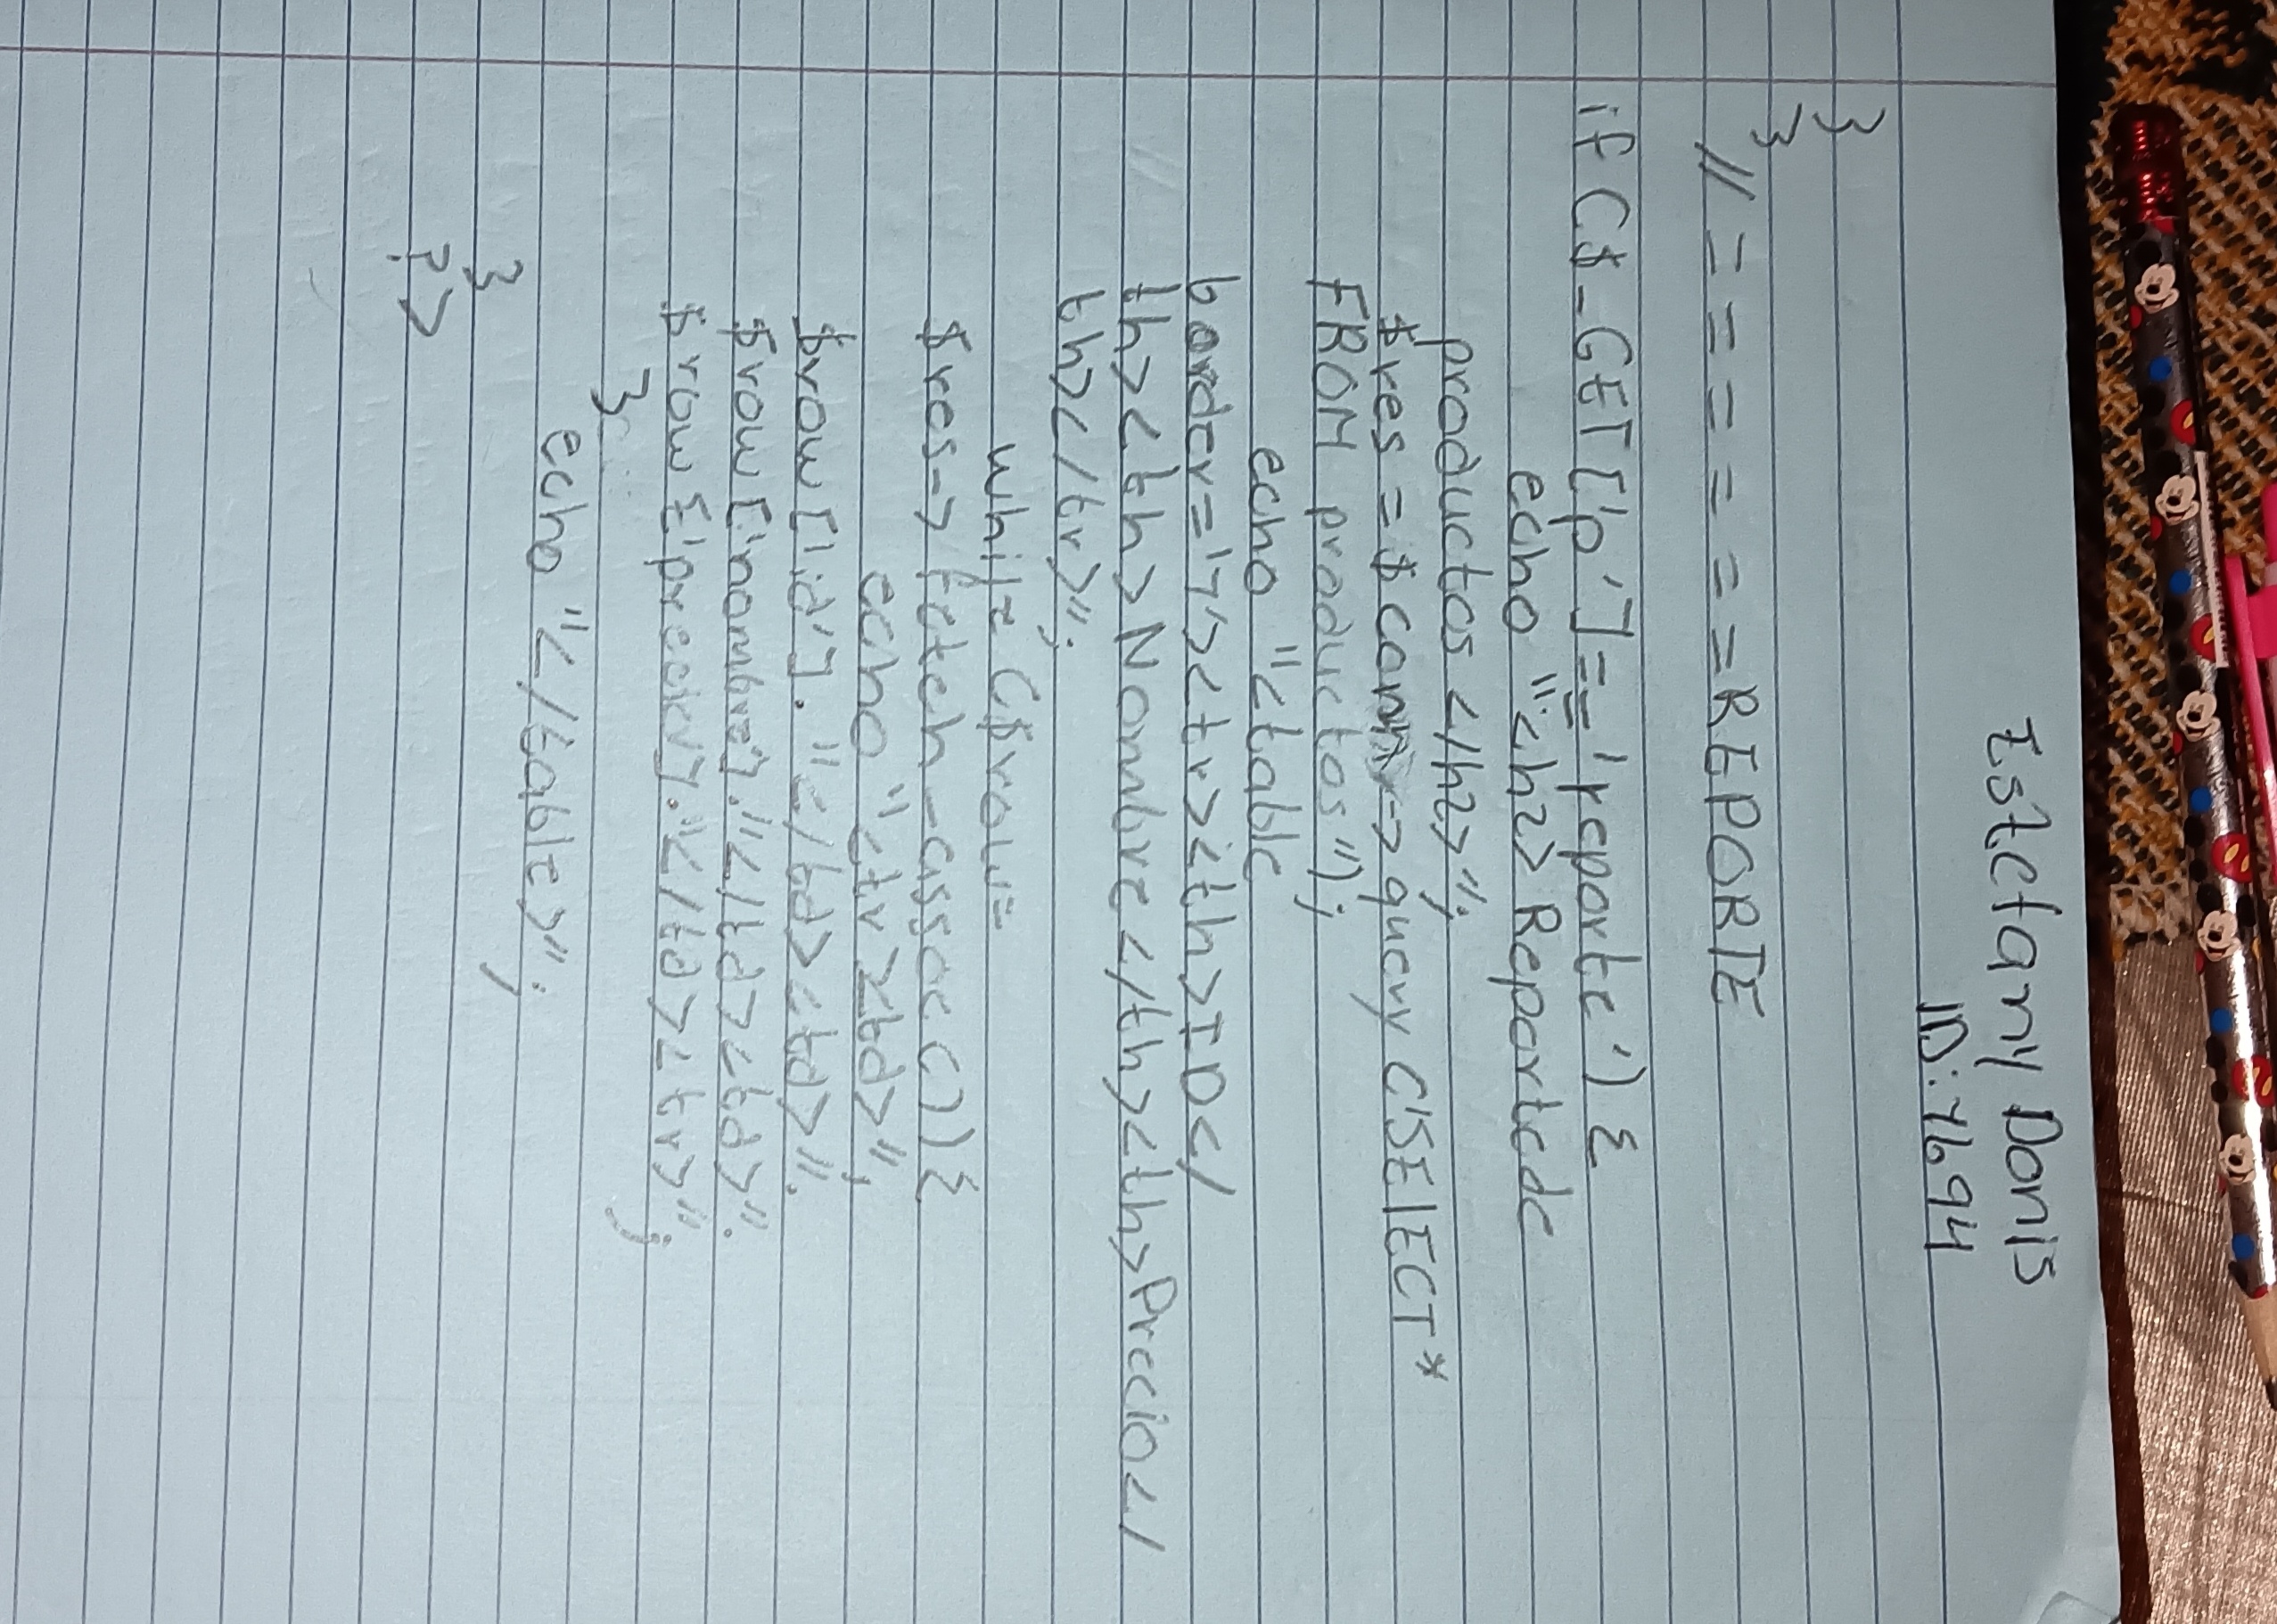 Estefany Donis
ID: 7694
}
}
// = = = = = = = REPORTE
if ($_GET['p'] == 'reporte') {
echo "<h2> Reporte de
productos </h2>";
$res = $conn -> query ('SElECT *
FROM productos");
echo "<table
border='1'><tr><th>ID</
th><th>Nombre</th><th>Precio</
th></tr>";
while ($row =
$res-> fetch_assoc()) {
echo "<tr><td>";
$row ['id']. "</td><td>".
$row ['nombre']."</td><td>".
$row ['precio']."</td><tr>";
}
echo "</table>";
}
?>